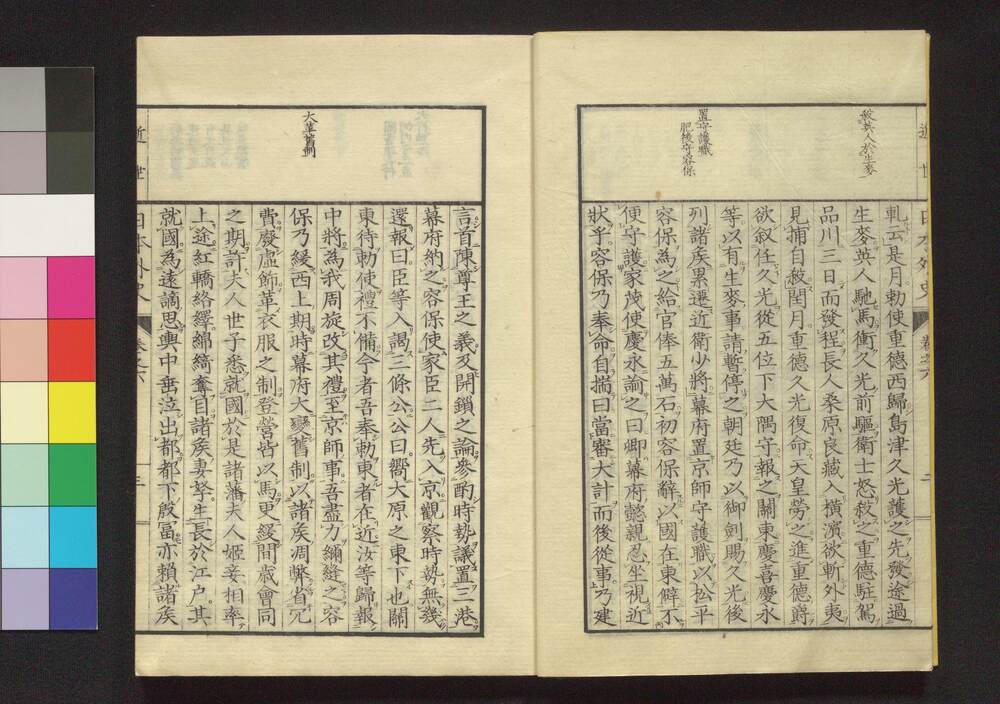 殺英人於生麥
置守護職
肥後守容保
軋云是月勅使重德西歸島津久光護之先發途過
生麥英人馳馬衝久光前驅衛士怒殺之重德駐駕
品川三日而發程長人桑原良藏入橫濱欲斬外夷
見捕自殺閏月重德久光復命天皇勞之進重德爵
欲敘任久光從五位下大隅守報之關東慶喜慶永
等以有生麥事請暫停之朝廷乃以御劍賜久光後
列諸矦累遷近衛少將幕府置京師守護職以松平
容保為之給官俸五萬石初容保辭以國在東僻不
便守護家茂使慶永諭之曰卿幕府懿親忍坐視近
狀乎容保乃奉命自揣曰當審大計而後從事乃建
大革舊制
言首陳尊王之義及開鎖之論參酌時勢議置三港
幕府納之容保使家臣二人先入京觀察時勢無幾
還報曰臣等入謁三條公公曰嚮大原之東下也關
東待勅使禮不備今者吾奉勅東者在近汝等歸報
中將為我周旋改其禮至京師事吾盡力彌縫之容
保乃緩西上期時幕府大變舊制以諸矦凋弊省冗
費廢虛飾革衣服之制登營皆以馬更緩間歲會同
之期許夫人世子悉就國於是諸藩夫人姬妾相率
上途紅轎絡繹錦綺奪目諸矦妻孥生長於江戸其
就國為遠謫思輿中垂泣出都都下殷冨亦賴諸矦
近世
日本外史
卷之六
三